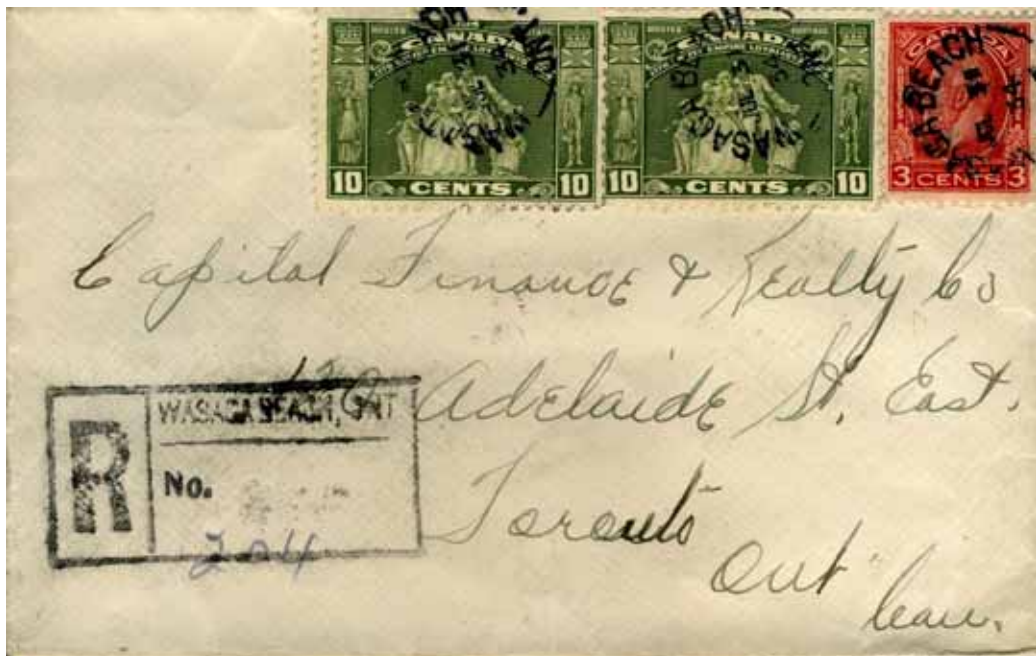 CANADA
10 CENTS 10
CANADA
10 CENTS 10
CANADA
3 CENTS 3
WASAGA BEACH
Capital Finance & Realty Co
Adelaide St. East.
Toronto
Ont
Can.
R
WASAGA BEACH, ONT
No.
204